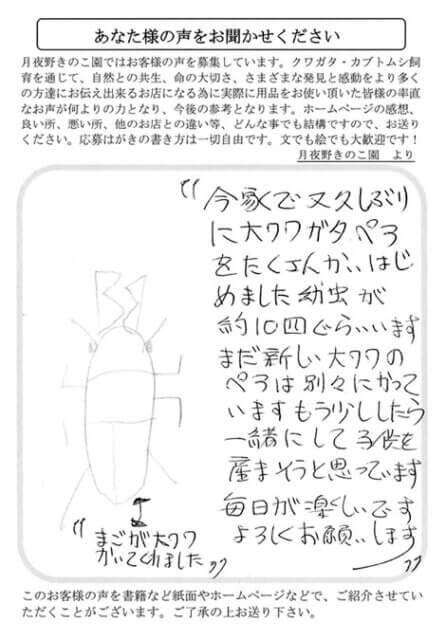 あなた様の声をお聞かせください
月夜野きのこ園ではお客様の声を募集しています。クワガタ・カブトムシ飼
育を通じて、自然との共生、命の大切さ、さまざまな発見と感動をより多く
の方達にお伝え出来るお店になる為に実際に用品をお使い頂いた皆様の率直
なお声が何よりの力となり、今後の参考となります。ホームページの感想、
良い所、悪い所、他のお店との違い等、どんな事でも結構ですので、お送り
ください。応募はがきの書き方は一切自由です。文でも絵でも大歓迎です！
月夜野きのこ園　より
〝今家で又久しぶり
に大クワガタペア
をたくさんかいはじ
めました幼虫が
約10匹ぐらいいます
まだ新しい大クワの
ペアは別々にかって
いますもう少ししたら
一緒にして子供を
産まそうと思っています
毎日が楽しいです
よろしくお願いします〟
〝まごが大クワ
かいてくれました〟
このお客様の声を書籍など紙面やホームページなどで、ご紹介させてい
ただくことがございます。ご了承の上お送り下さい。